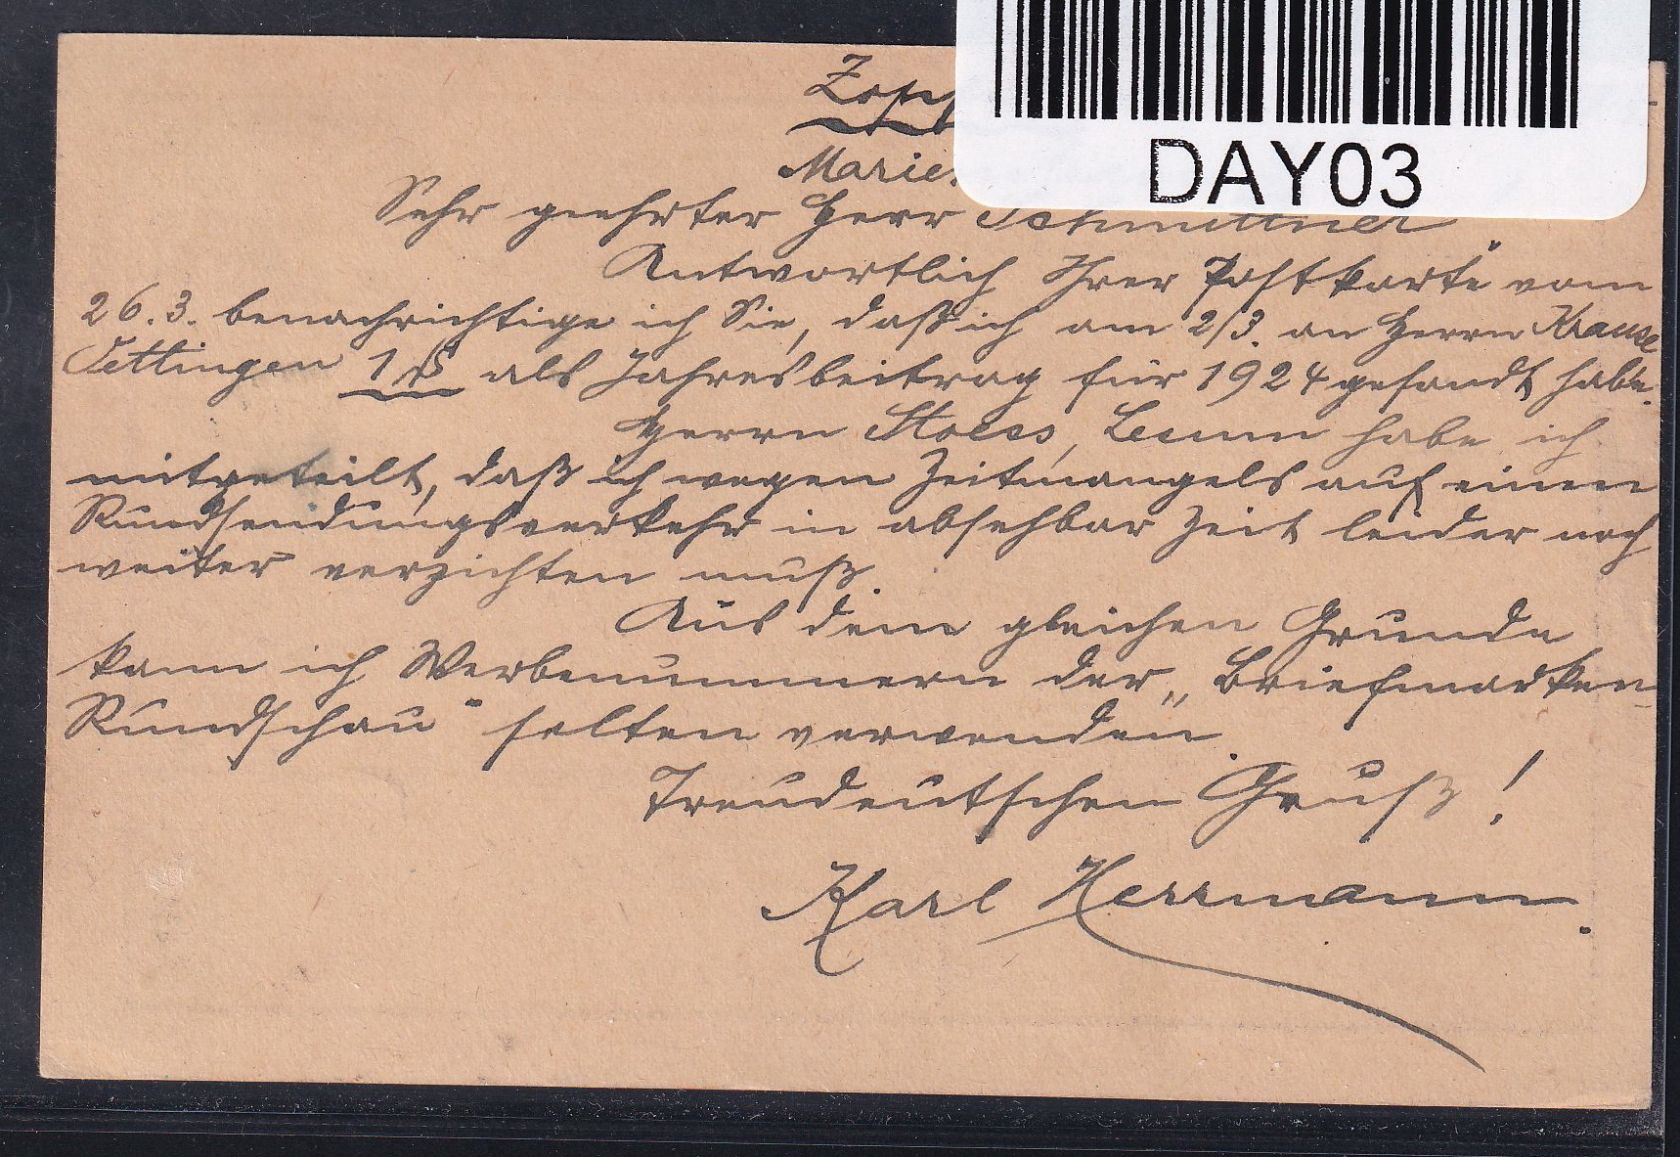 DAY03
Zopp
Marie
Sehr geehrter Herr Schmittner
Antwortlich Ihrer Postkarte vom
26.3. benachrichtige ich Sie, daß ich am 2/3. an Herrn Krause
Tettingen 1 als Jahresbeitrag für 1924 gesandt habe.
Herrn Stoess, Lesum habe ich
mitgeteilt, daß ich wegen Zeitmangels auf einen
Rundsendungsverkehr in absehbar Zeit leider noch
weiter verzichten muß.
Aus dem gleichen Grunde
kann ich Werbenummern der „Briefmarken-
Rundschau" selten verwenden.
Treudeutschen Gruß!
Karl Herrmann.